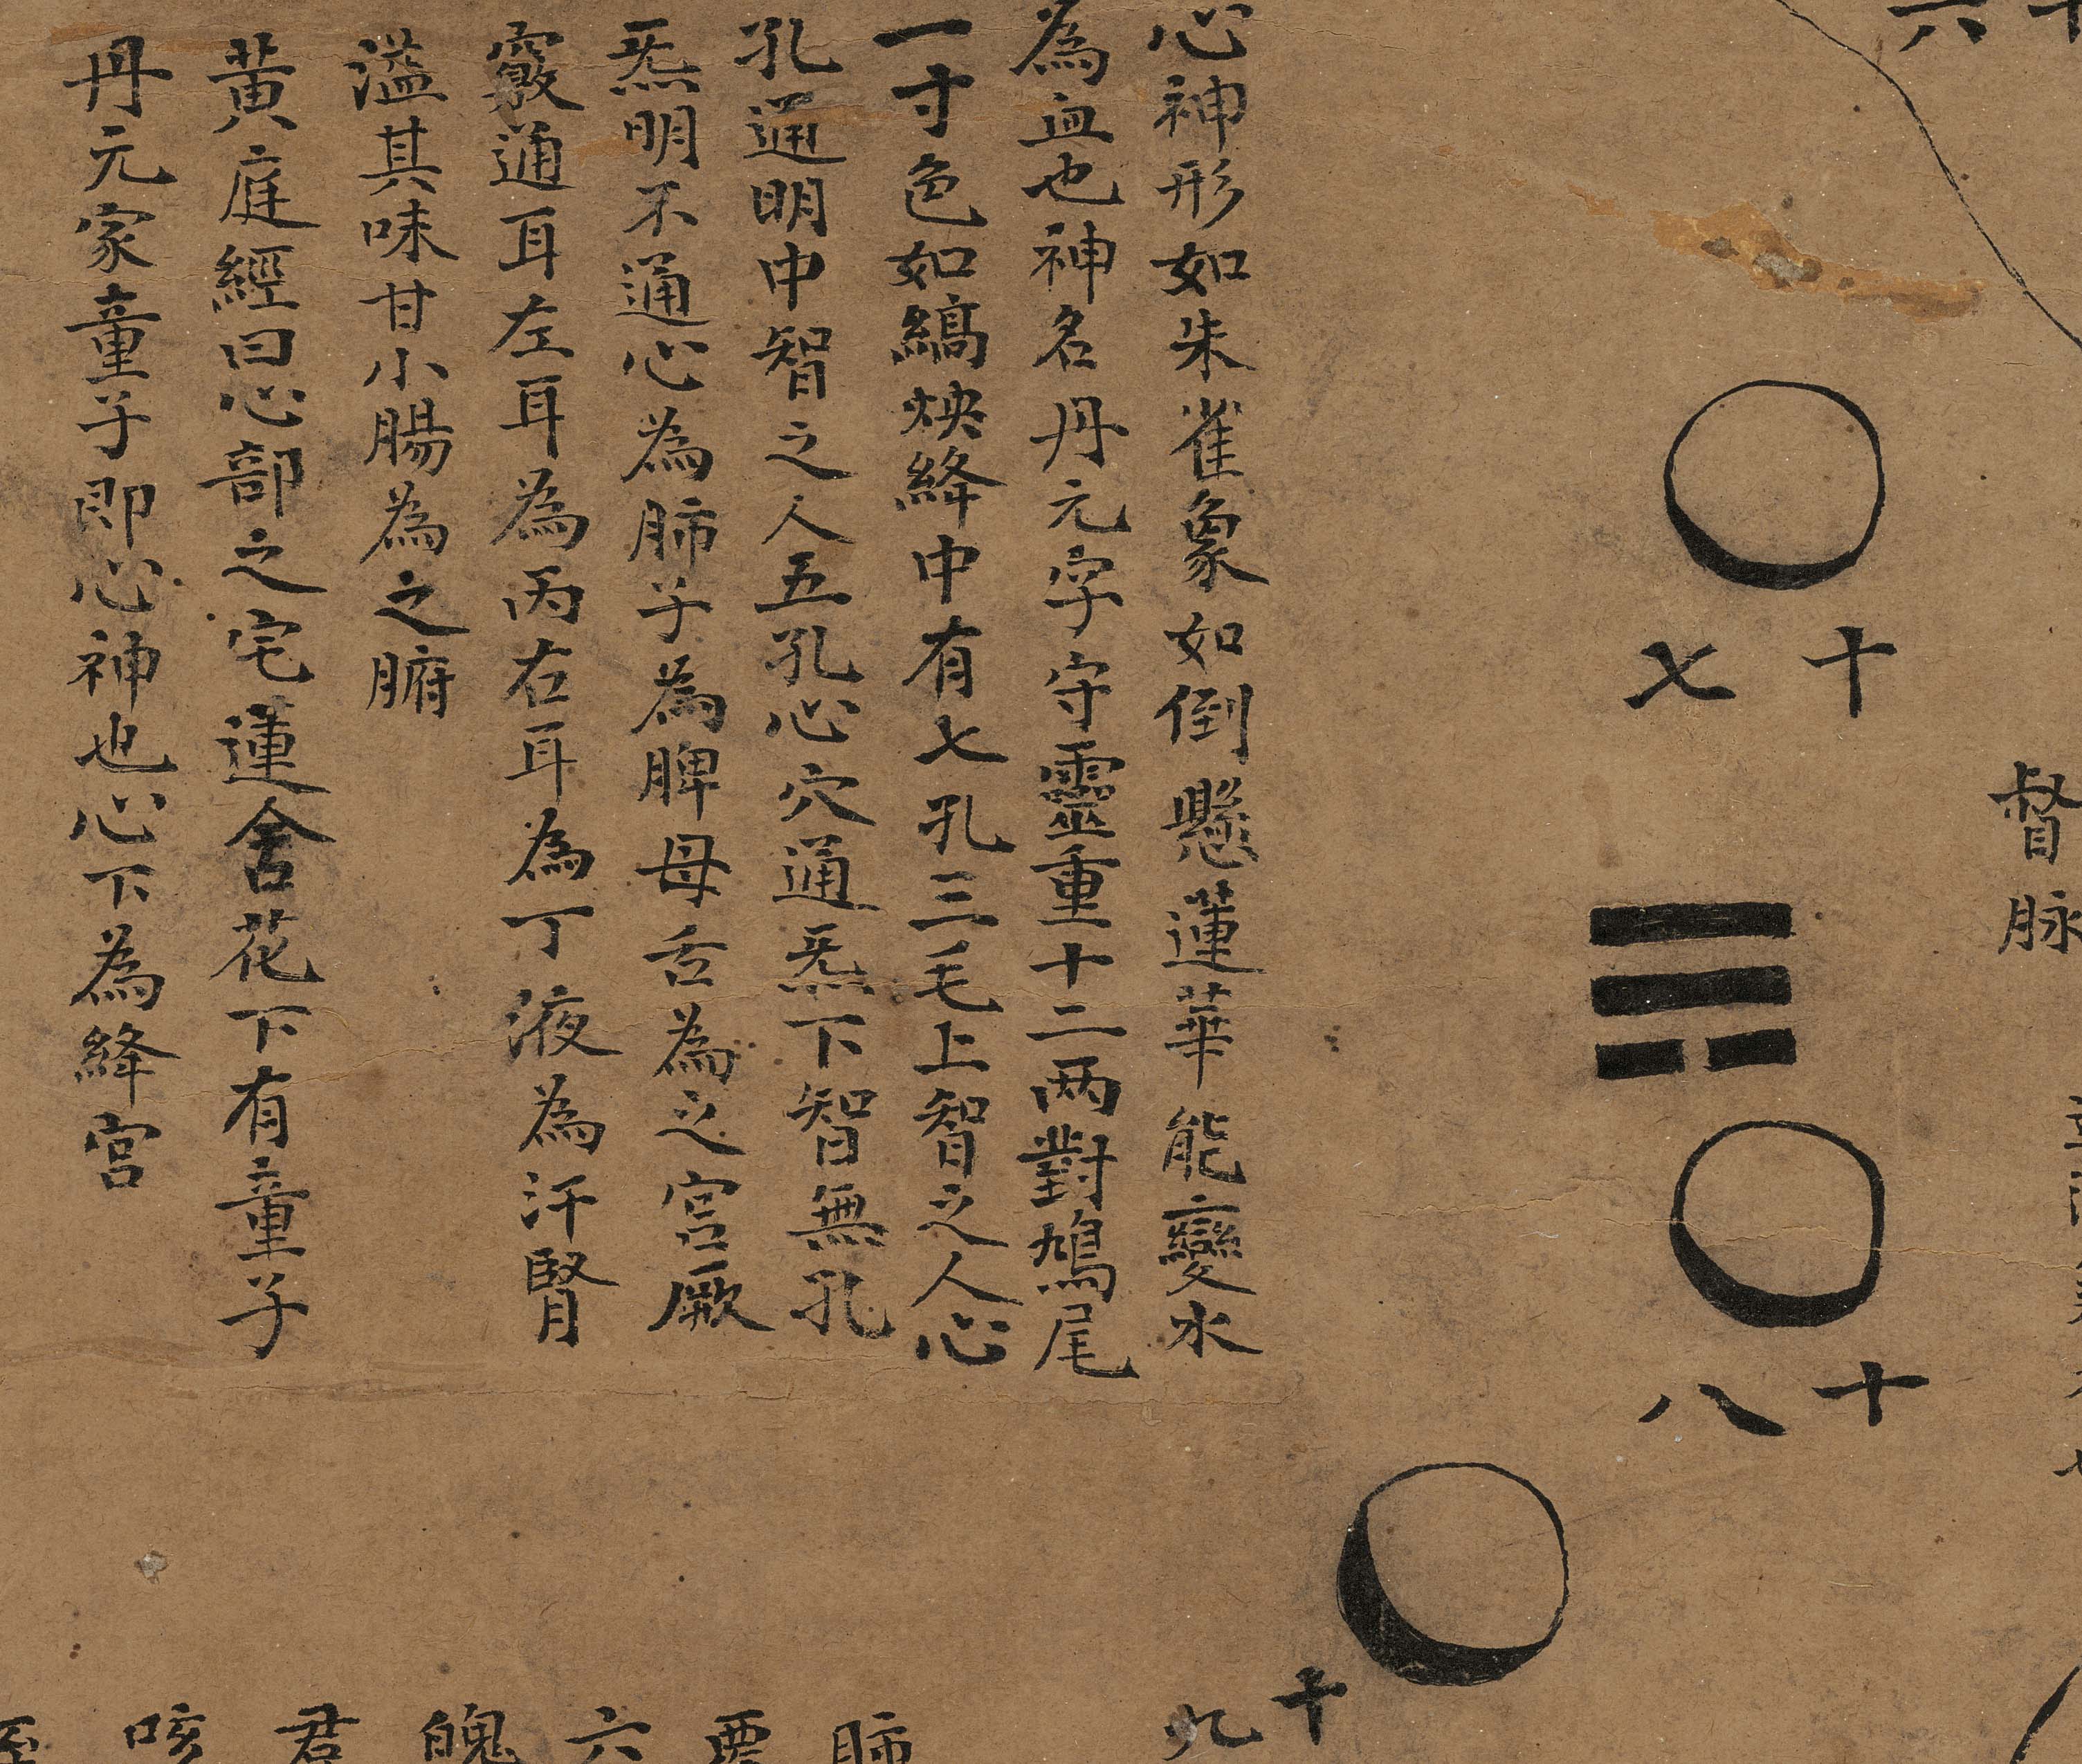 十六
督脉
十七
十八
十九
心神形如朱雀象如倒懸蓮華能變水
為血也神名丹元字守靈重十二两對鳩尾
一寸色如縞焕絳中有七孔三毛上智之人心
孔通明中智之人五孔心穴通炁下智無孔
炁明不通心為肺子為脾母舌為之宮厥
竅通耳左耳為丙右耳為丁液為汗腎
溢其味甘小腸為之腑
黃庭經曰心部之宅蓮含花下有童子
丹元家童子即心神也心下為絳宮
肺
六
魄
君
咳